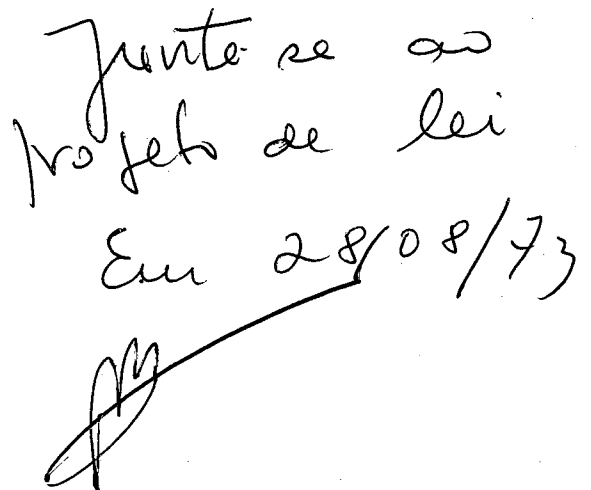 Junte-se ao
projeto de lei
Em 28/08/73